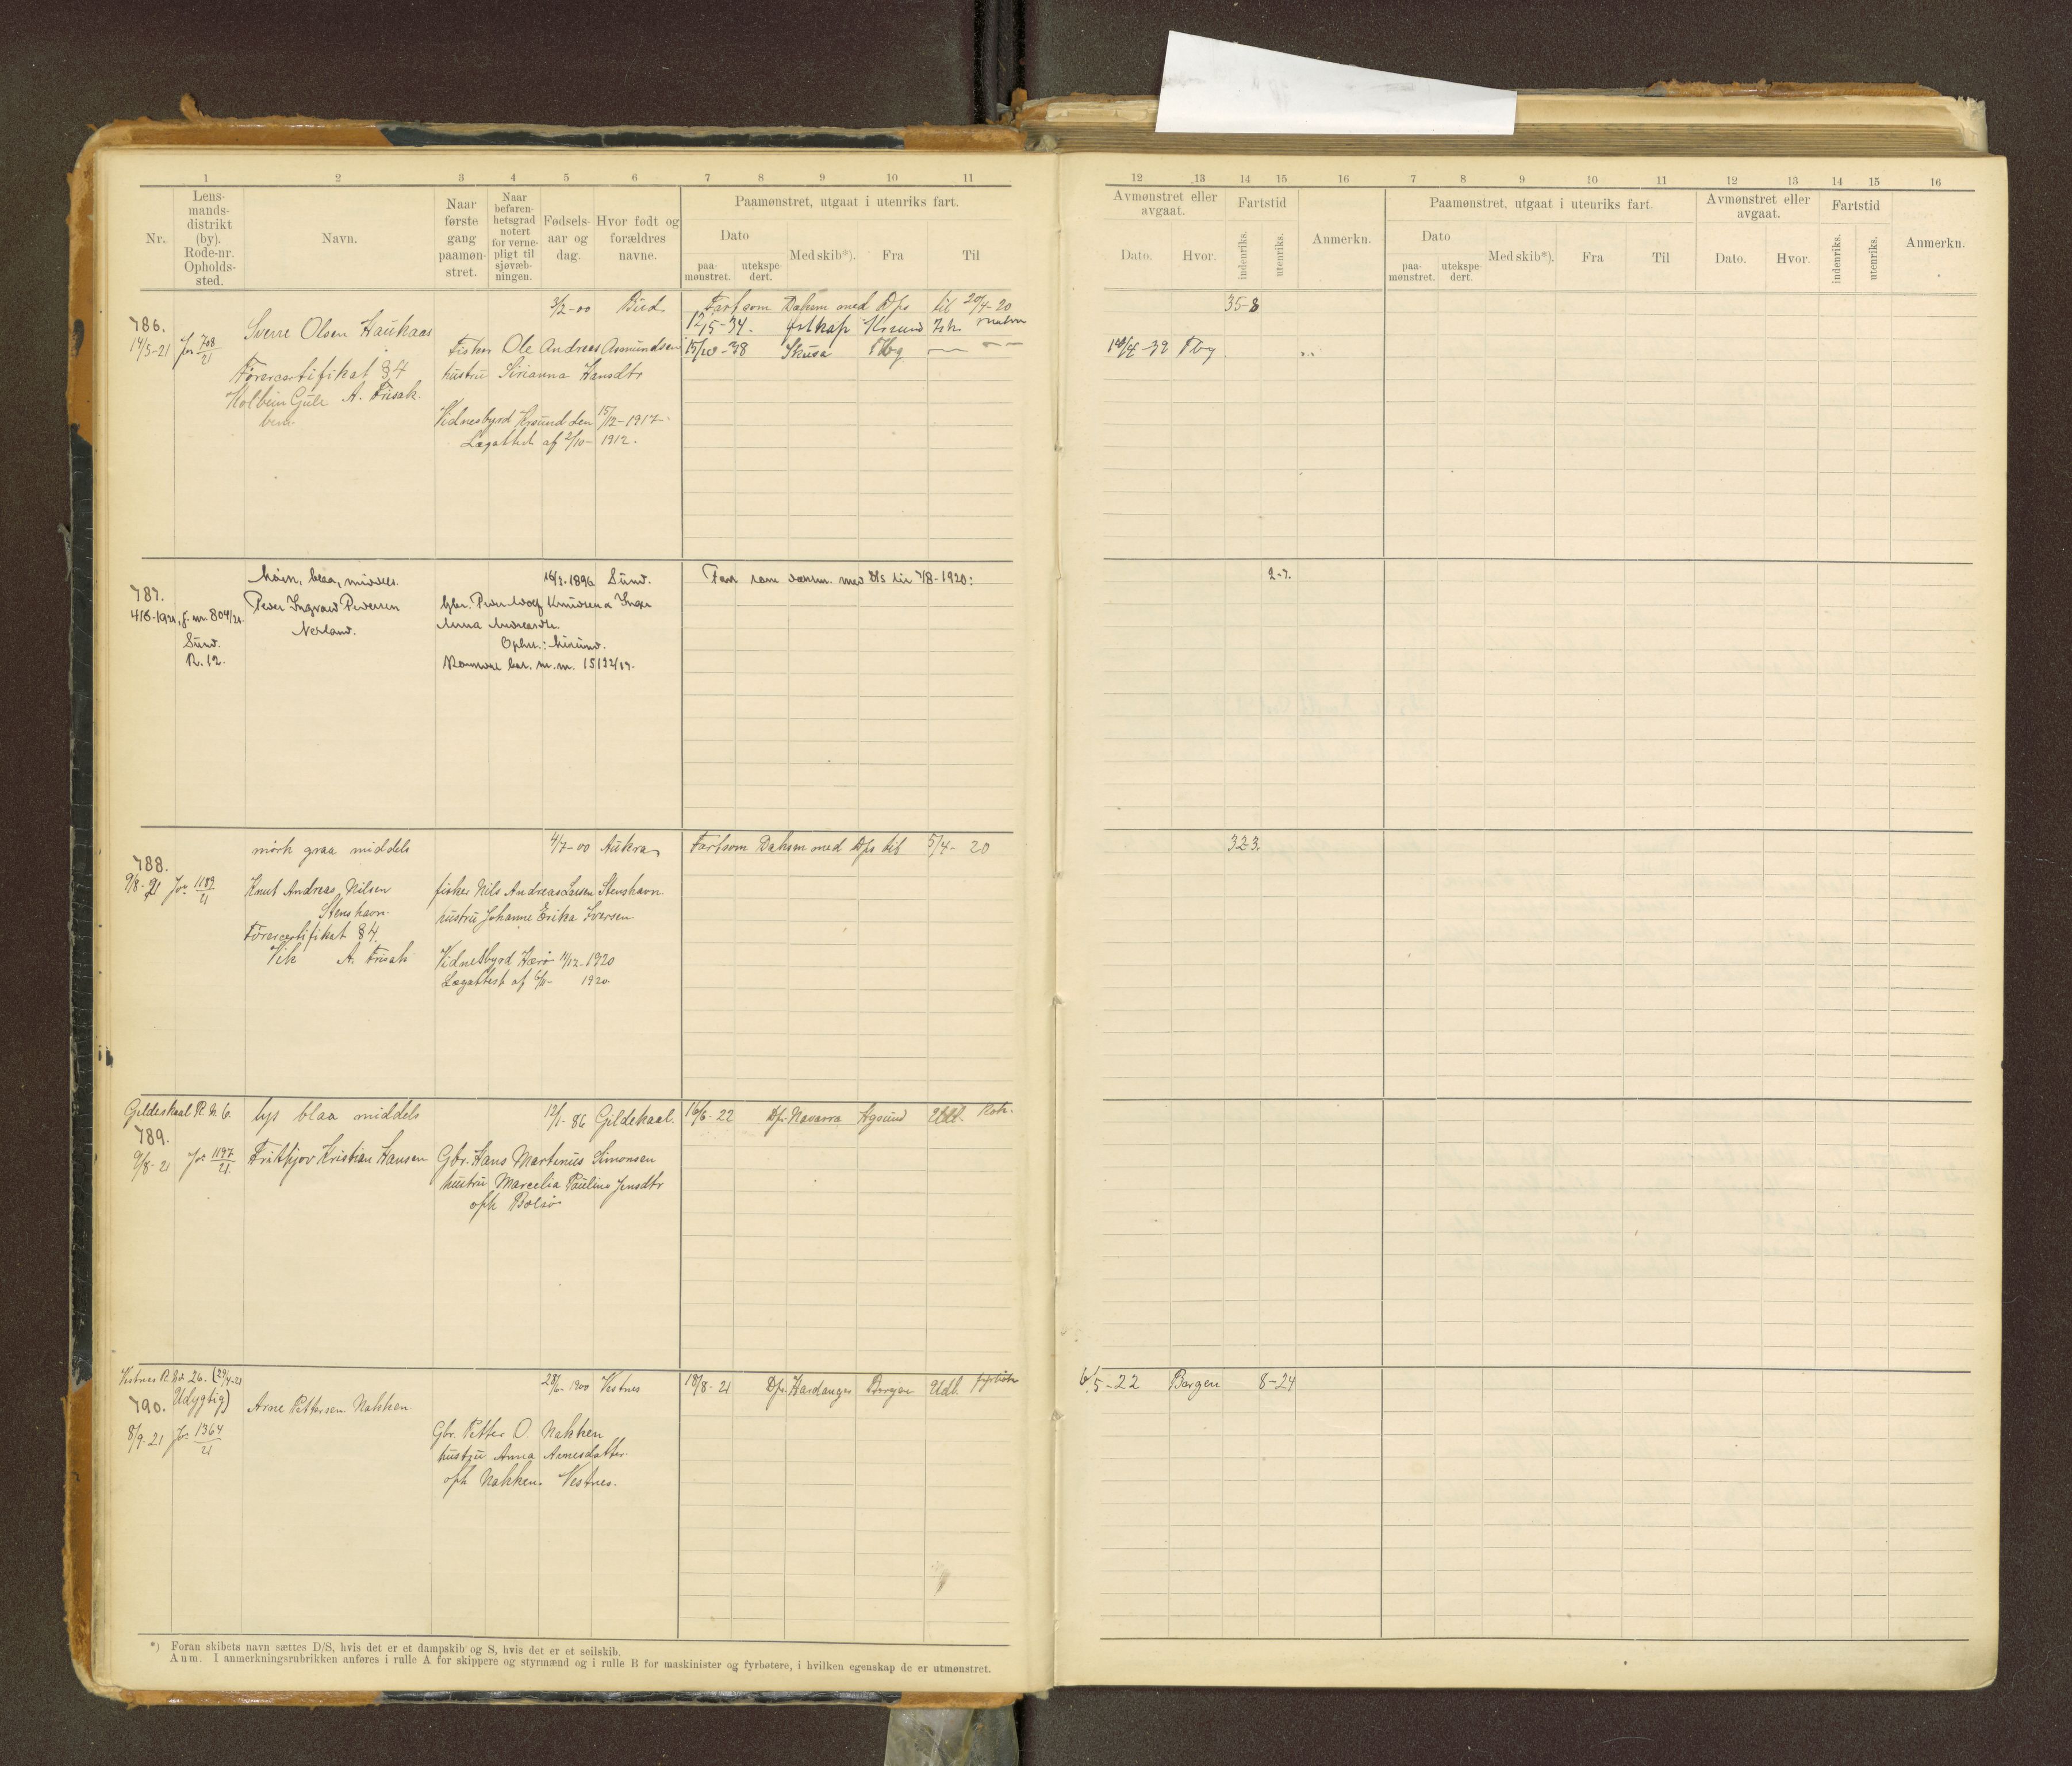 1 2 3 4 5 6 7 8 9 10 11
Nr.
Lens-
mands-
distrikt
(by).
Rode-nr.
Opholds-
sted.
Navn.
Naar
første
gang
paamøn-
stret.
Naar
befaren-
hetsgrad
notert
for verne-
pligt til
sjøvæb-
ningen.
Fødsels-
aar og
dag.
Hvor født og
forældres
navne.
Paamønstret, utgaat i utenriks fart.
Dato
paa-
mønstret.
utekspe-
dert.
Med skib*).
Fra
Til
786.
14/5-21 Jnr 708/21
Sverre Olsen Haukaas
Førercertifikat §4
A. Frisak.
3/2-00 Bud
Fisker Ole Andreas Asmundsen
hustru Sirianna Hansdtr
Vidnesbyrd Krsund den 15/12-1917
Lægattest af 2/10-1912.
Fart som Dæksm med D/s til 20/4-20
12/5-34. Krsund
15/10-38 Skusa Tbg
787.
4/6-1921, j. nr. 804/21.
Sund.
R. 12.
Peder Ingvald Pedersen
Nerland.
1896 Sund.
Anna Andreasdtr.
Fart som dæksm. med D/s til 7/8-1920:
788.
9/8-21 Jnr 1189/21
mørk graa middels
Knut Andreas Nilsen
Stenshavn.
Førercertifikat §4.
Vik A. Frisak
4/7-00 Aukra
fisker Nils Andreas Larsen Stenshavn
hustru Johanne Erika Iversen.
Vidnesbyrd Harø 11/12-1920
Lægattest af 6/11-1920
Fart som Dæksm med D/s til 5/4-20
Gildeskaal R. N 6.
789.
9/8-21 Jnr 1197/21.
lys blaa middels
Frithjov Kristian Hansen
12/1-86 Gildeskaal.
Gbr. Hans Martinus Simonsen
hustru Marcelia Pauline Jensdtr
oph Bolsø
16/6-22 D/s Navarra Agsund Utl. Kok.
Vestnes R. No 26. (29/4-21
Udygtig)
790.
8/9-21 Jnr 1364/21
Arne Pettersen Nakken
28/6-1900 Vestnes
Gbr. Petter O. Nakken
hustru Anna Arnesdatter.
oph Nakken. Vestnes.
18/8-21 D/s Hardanger Bergen Utl. fyrbøter
*) Foran skibets navn sættes D/S, hvis det er et dampskib og S, hvis det er et seilskib.
Anm. I anmerkningsrubrikken anføres i rulle A for skippere og styrmænd og i rulle B for maskinister og fyrbøtere, i hvilken egenskap de er utmønstret.
12 13 14 15 16 7 8 9 10 11 12 13 14 15 16
Avmønstret eller
avgaat.
Dato. Hvor.
Fartstid
indenriks.
utenriks.
Anmerkn.
Paamønstret, utgaat i utenriks fart.
Dato
paa-
mønstret.
utekspe-
dert.
Med skib*).
Fra
Til
Avmønstret eller
avgaat.
Dato. Hvor.
Fartstid
indenriks.
utenriks.
Anmerkn.
35-8
14/4-39 Tbg
2-7.
32-3.
6/5-22 Bergen 8-24